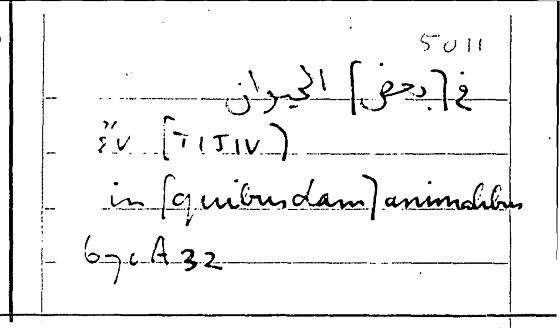 5011
في [بعض] الحيوان
ἔν [τισιν]
in [quibusdam] animalibus
A 32